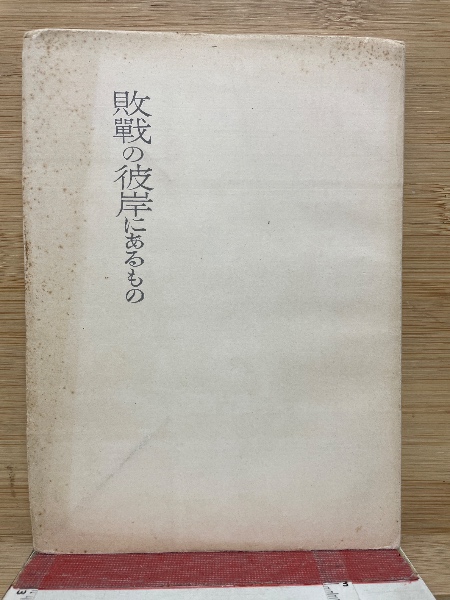 敗戰の彼岸にあるもの